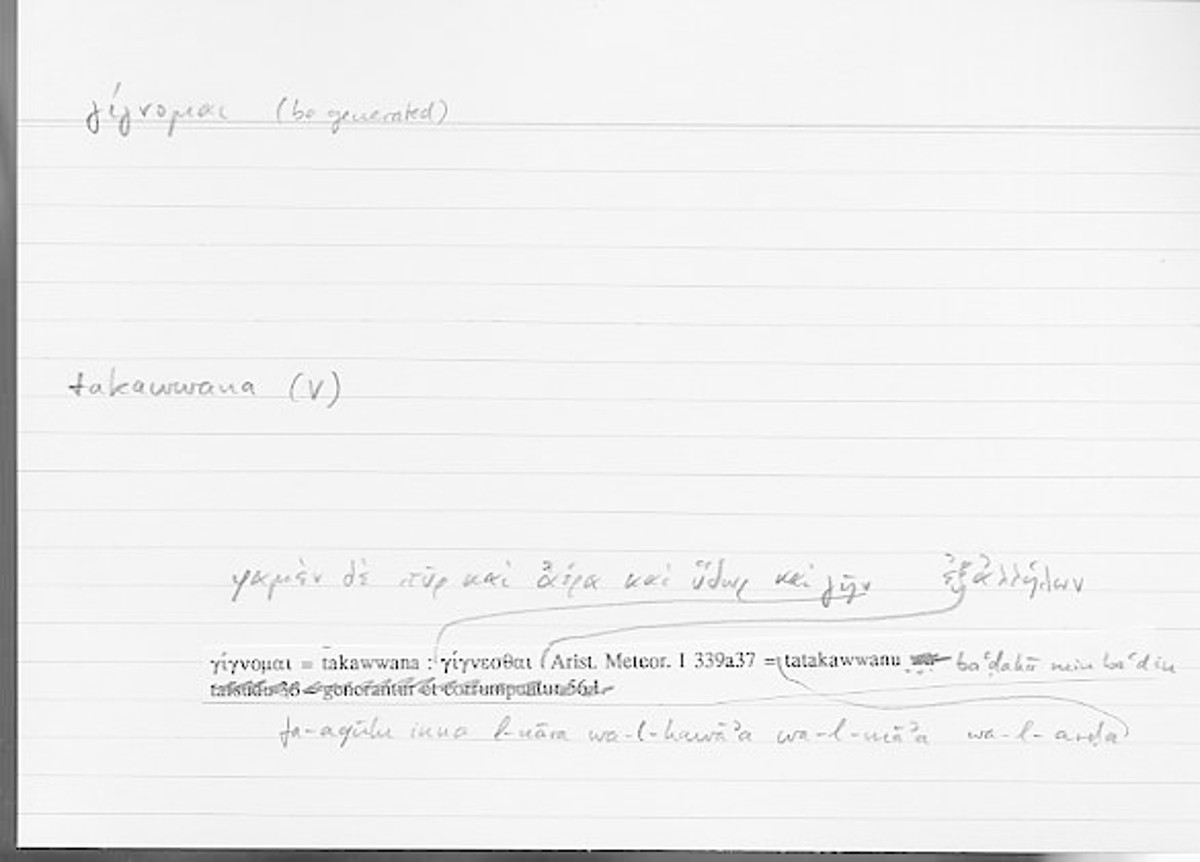 γίγνομαι (be generated)
takawwana (V)
φαμὲν δὲ πῦρ καὶ ἀέρα καὶ ὕδωρ καὶ γῆν ἐξ ἀλλήλων
γίγνομαι = takawwana : γίγνεσθαι (Arist. Meteor. I 339a37 = tatakawwanu baʿḍahā min baʿḍin
generantur et corrumpuntur 56
fa-aqūlu inna l-nāra wa-l-hawāʾa wa-l-māʾa wa-l-arḍa